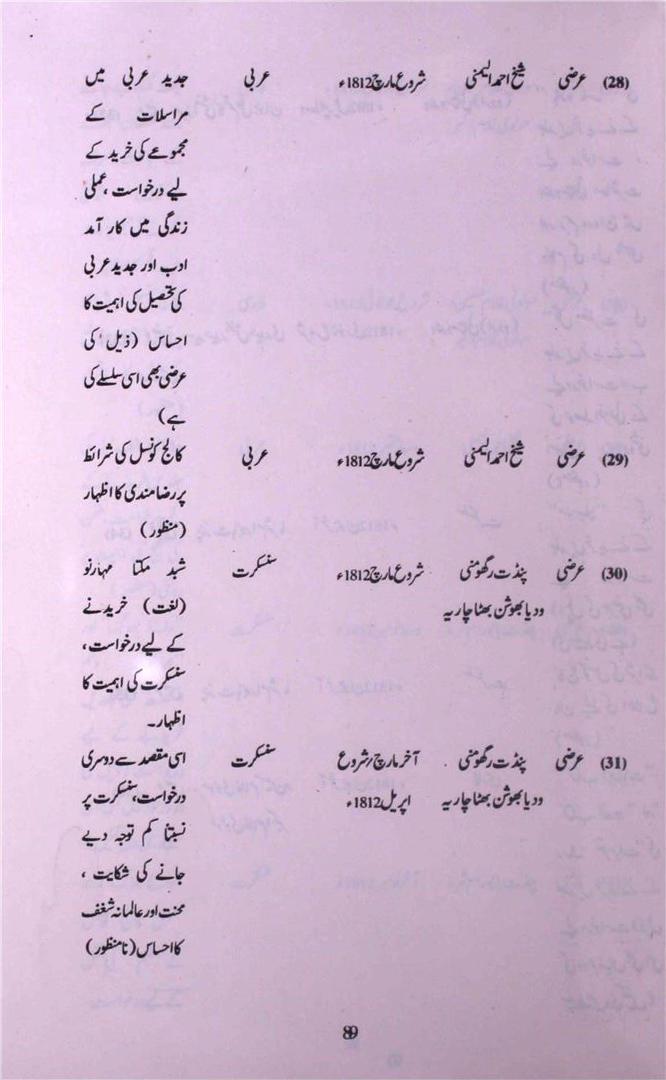 (28) عرضی شیخ احمد الیمنی شروع مارچ 1812ء عربی جدید عربی میں
مراسلات کے
مجموعے کی خرید کے
لیے درخواست ، عملی
زندگی میں کار آمد
ادب اور جدید عربی
کی تحصیل کی اہمیت کا
احساس (ذیل کی
عرضی بھی اسی سلسلے کی
ہے)
(29) عرضی شیخ احمد الیمنی شروع مارچ 1812ء عربی کالج کونسل کی شرائط
پر رضامندی کا اظہار
(منظور)
(30) عرضی پنڈت رگھومنی شروع مارچ 1812ء سنسکرت شبد مکتا مہارنو
ودیا بھوشن بھٹاچاریہ (لغت) خریدنے
کے لیے درخواست ،
سنسکرت کی اہمیت کا
اظہار۔
(31) عرضی پنڈت رگھومنی آخر مارچ/شروع سنسکرت اسی مقصد سے دوسری
ودیا بھوشن بھٹاچاریہ اپریل 1812ء درخواست، سنسکرت پر
نسبتاً کم توجہ دیے
جانے کی شکایت ،
محنت اور عالمانہ شغف
کا احساس (نامنظور)
89